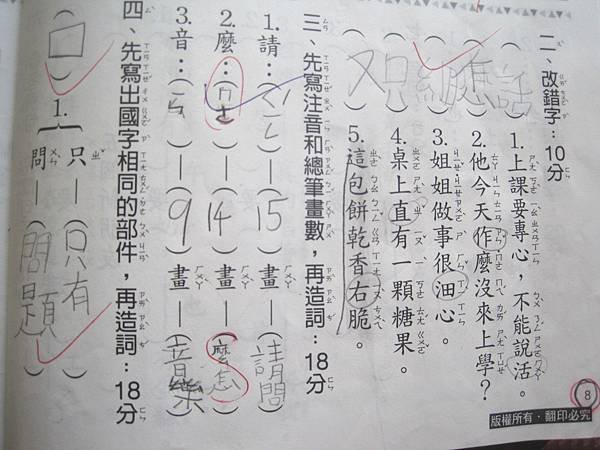 二、改錯字：10分
（話）1.上課要專心，不能說活。
（怎）2.他今天作麼沒來上學？
（細）3.姐姐做事很心。
（只）4.桌上直有一顆糖果。
（又）5.這包餅乾香右脆。
三、先寫注音和總筆畫數，再造詞：18分
1.請：（ㄑㄧㄥˇ）—（15）畫—（請問）
2.麼：（ㄇㄜ）—（14）畫—（麼怎）
3.音：（ㄧㄣ）—（9）畫—（音樂）
四、先寫出國字相同的部件，再造詞：18分
（口）1.
只—（只有）
問—（問題）
8
版權所有‧翻印必究